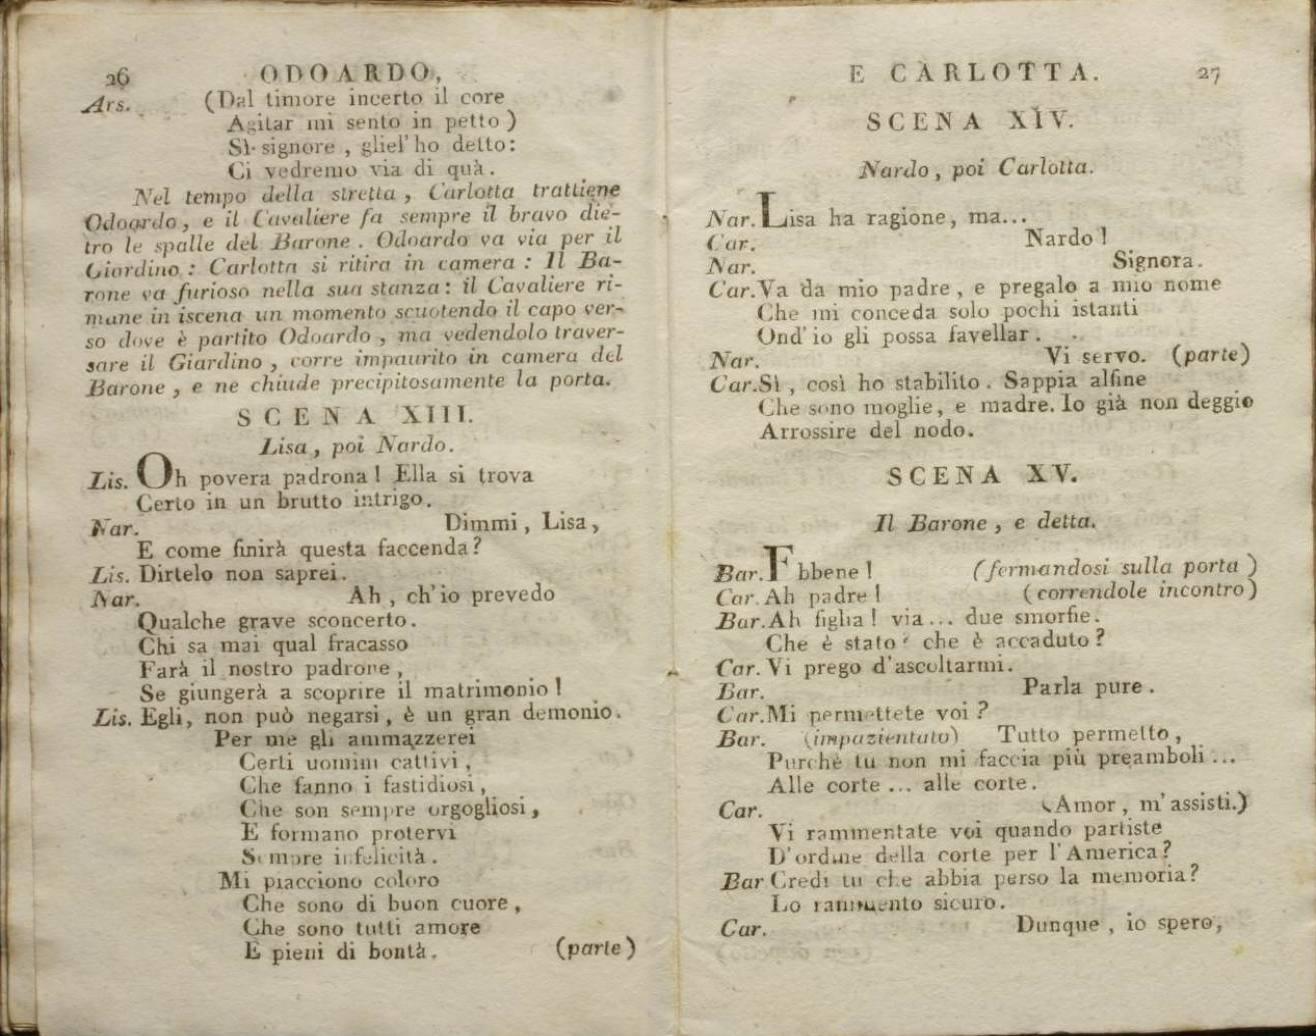 26 ODOARDO,
Ars. (Dal timore incerto il core
Agitar mi sento in petto)
Sì signore, gliel' ho detto:
Ci vedremo via di quà.
Nel tempo della stretta, Carlotta trattiene
Odoardo, e il Cavaliere fa sempre il bravo die-
tro le spalle del Barone. Odoardo va via per il
Giardino: Carlotta si ritira in camera: Il Ba-
rone va furioso nella sua stanza: il Cavaliere ri-
mane in iscena un momento scuotendo il capo ver-
so dove è partito Odoardo, ma vedendolo traver-
sare il Giardino, corre impaurito in camera del
Barone, e ne chiude precipitosamente la porta.
SCENA XIII.
Lisa, poi Nardo.
Lis. Oh povera padrona! Ella si trova
Certo in un brutto intrigo.
Nar. Dimmi, Lisa,
E come finirà questa faccenda?
Lis. Dirtelo non saprei.
Nar. Ah, ch'io prevedo
Qualche grave sconcerto.
Chi sa mai qual fracasso
Farà il nostro padrone,
Se giungerà a scoprire il matrimonio!
Lis. Egli, non può negarsi, è un gran demonio.
Per me gli ammazzerei
Certi uomini cattivi,
Che fanno i fastidiosi,
Che son sempre orgogliosi,
E formano protervi
Sempre infelicità.
Mi piacciono coloro
Che sono di buon cuore,
Che sono tutti amore
E pieni di bontà. (parte)
E CARLOTTA. 27
SCENA XIV.
Nardo, poi Carlotta.
Nar. Lisa ha ragione, ma...
Car. Nardo!
Nar. Signora.
Car. Va da mio padre, e pregalo a mio nome
Che mi conceda solo pochi istanti
Ond' io gli possa favellar.
Nar. Vi servo. (parte)
Car. Sì, così ho stabilito. Sappia alfine
Che sono moglie, e madre. Io già non deggio
Arrossire del nodo.
SCENA XV.
Il Barone, e detta.
Bar. Ebbene! (fermandosi sulla porta)
Car. Ah padre! (correndole incontro)
Bar. Ah figlia! via... due smorfie.
Che è stato? che è accaduto?
Car. Vi prego d'ascoltarmi.
Bar. Parla pure.
Car. Mi permettete voi?
Bar. (impazientato) Tutto permetto,
Purchè tu non mi faccia più preamboli...
Alle corte... alle corte.
Car. (Amor, m'assisti.)
Vi rammentate voi quando partiste
D'ordine della corte per l'America?
Bar Credi tu che abbia perso la memoria?
Lo rammento sicuro.
Car. Dunque, io spero,